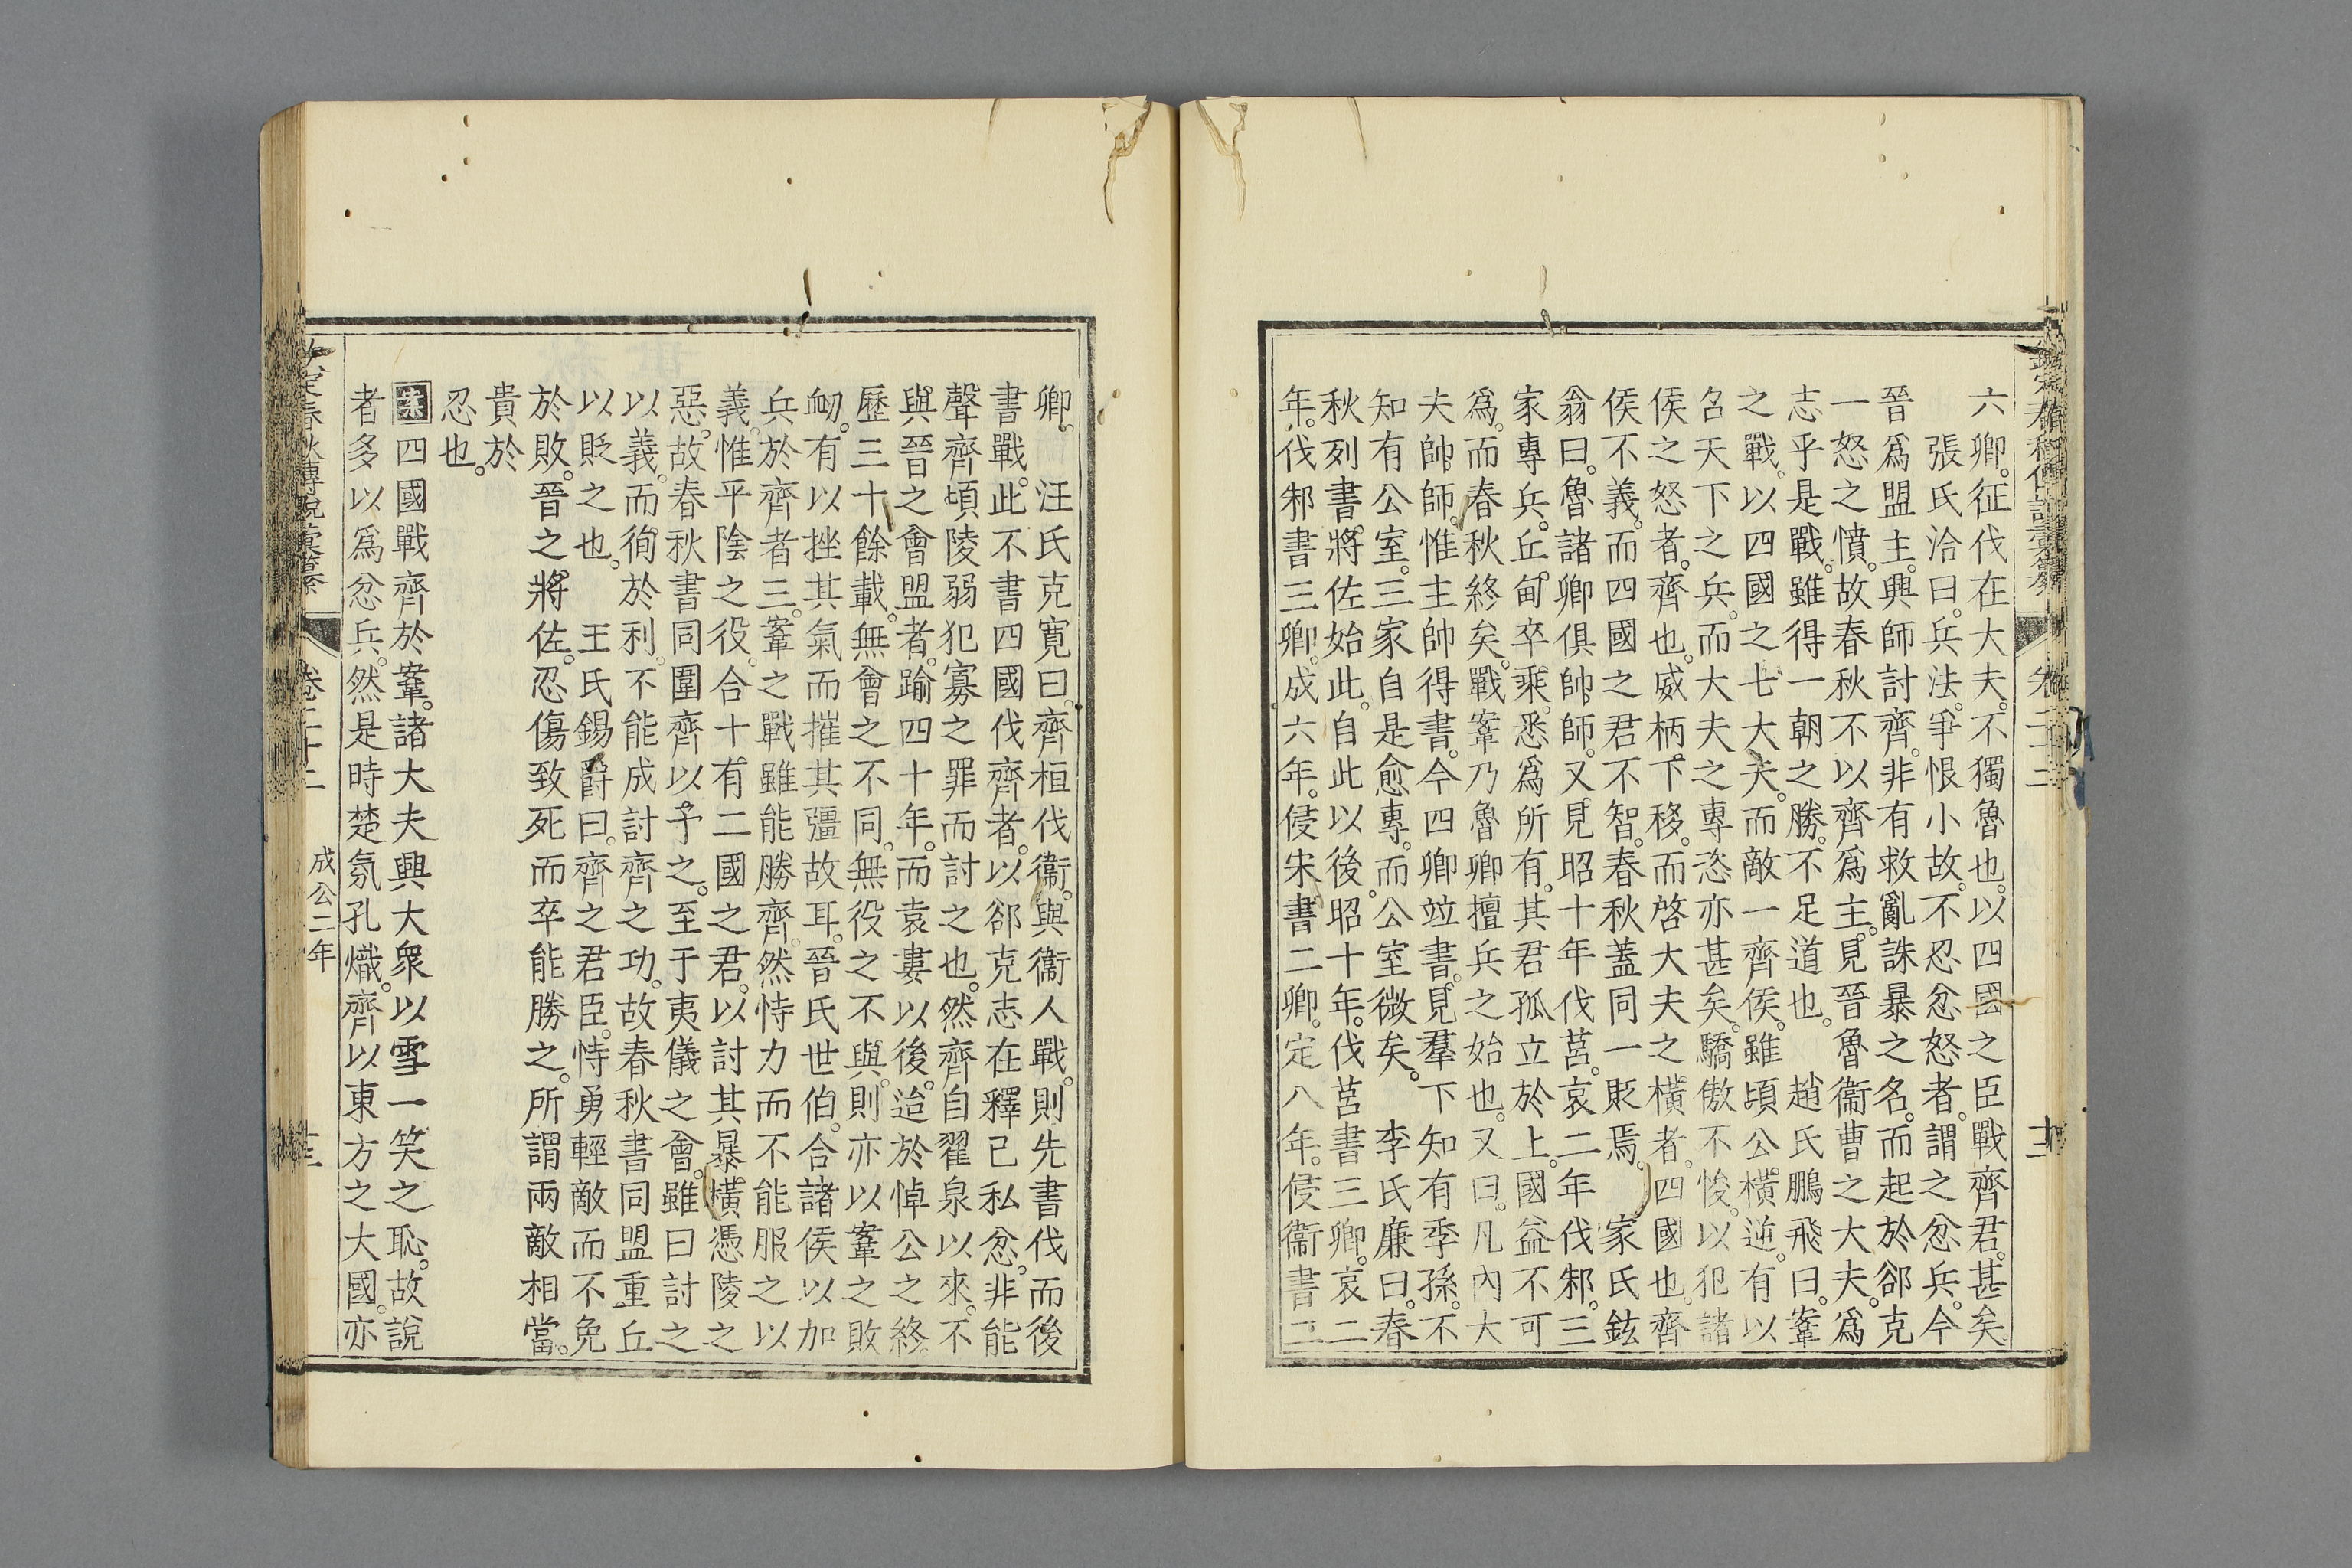 六卿。征伐在大夫。不獨魯也。以四國之臣戰齊君。甚矣
張氏洽曰。兵法。爭恨小故。不忍忿怒者。謂之忿兵。今
晉爲盟主。興師討齊。非有救亂誅暴之名。而起於郤克
一怒之憤。故春秋不以齊爲主。見晉魯衞曹之大夫。爲
志乎是戰。雖得一朝之勝。不足道也。 趙氏鵬飛曰。鞌
之戰。以四國之七大夫。而敵一齊侯。雖頃公橫逆。有以
召天下之兵。而大夫之專恣亦甚矣。驕傲不悛。以犯諸
侯之怒者。齊也。威柄下移。而啓大夫之橫者。四國也。齊
侯不義。而四國之君不智。春秋蓋同一貶焉。 家氏鉉
翁曰。魯諸卿俱帥師。又見昭十年伐莒。哀二年伐邾。三
家專兵。丘甸卒乘。悉爲所有。其君孤立於上。國益不可
爲。而春秋終矣。戰鞌乃魯卿擅兵之始也。又曰。凡內大
夫帥師。惟主帥得書。今四卿竝書。見羣下知有季孫。不
知有公室。三家自是愈專。而公室微矣。 李氏廉曰。春
秋列書。將佐始此。自此以後。昭十年。伐莒書三卿。哀二
年。伐邾書三卿。成六年。侵宋書二卿。定八年。侵衞書二
卿。 汪氏克寬曰。齊桓伐衞。與衞人戰。則先書伐而後
書戰。此不書四國伐齊者。以郤克志在釋己私忿。非能
聲齊頃陵弱犯寡之罪而討之也。然齊自翟泉以來。不
與晉之會盟者。踰四十年。而袁婁以後。迨於悼公之終。
歷三十餘載。無會之不同。無役之不與。則亦以鞌之敗
衂。有以挫其氣而摧其彊故耳。晉氏世伯。合諸侯以加
兵於齊者三。鞌之戰雖能勝齊。然恃力而不能服之以
義。惟平陰之役。合十有二國之君。以討其暴橫憑陵之
惡。故春秋書同圍齊以予之。至于夷儀之會。雖曰討之
以義。而徇於利。不能成討齊之功。故春秋書同盟重丘
以貶之也。 王氏錫爵曰。齊之君臣。恃勇輕敵而不免
於敗。晉之將佐。忍傷致死而卒能勝之。所謂兩敵相當。
貴於
忍也。
案四國戰齊於鞌。諸大夫興大衆以雪一笑之恥。故說
者多以爲忿兵。然是時楚氛孔熾。齊以東方之大國。亦
春秋傳說彙纂 卷二十二 成公二年